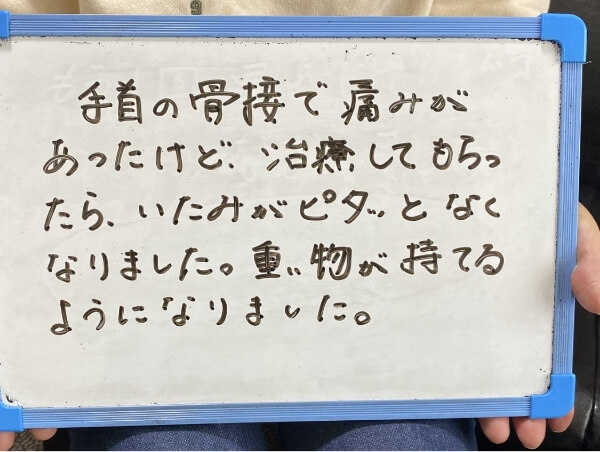 手首の骨接で痛みが
あったけど、治療してもらっ
たら、いたみがピタッとなく
なりました。重い物が持てる
ようになりました。